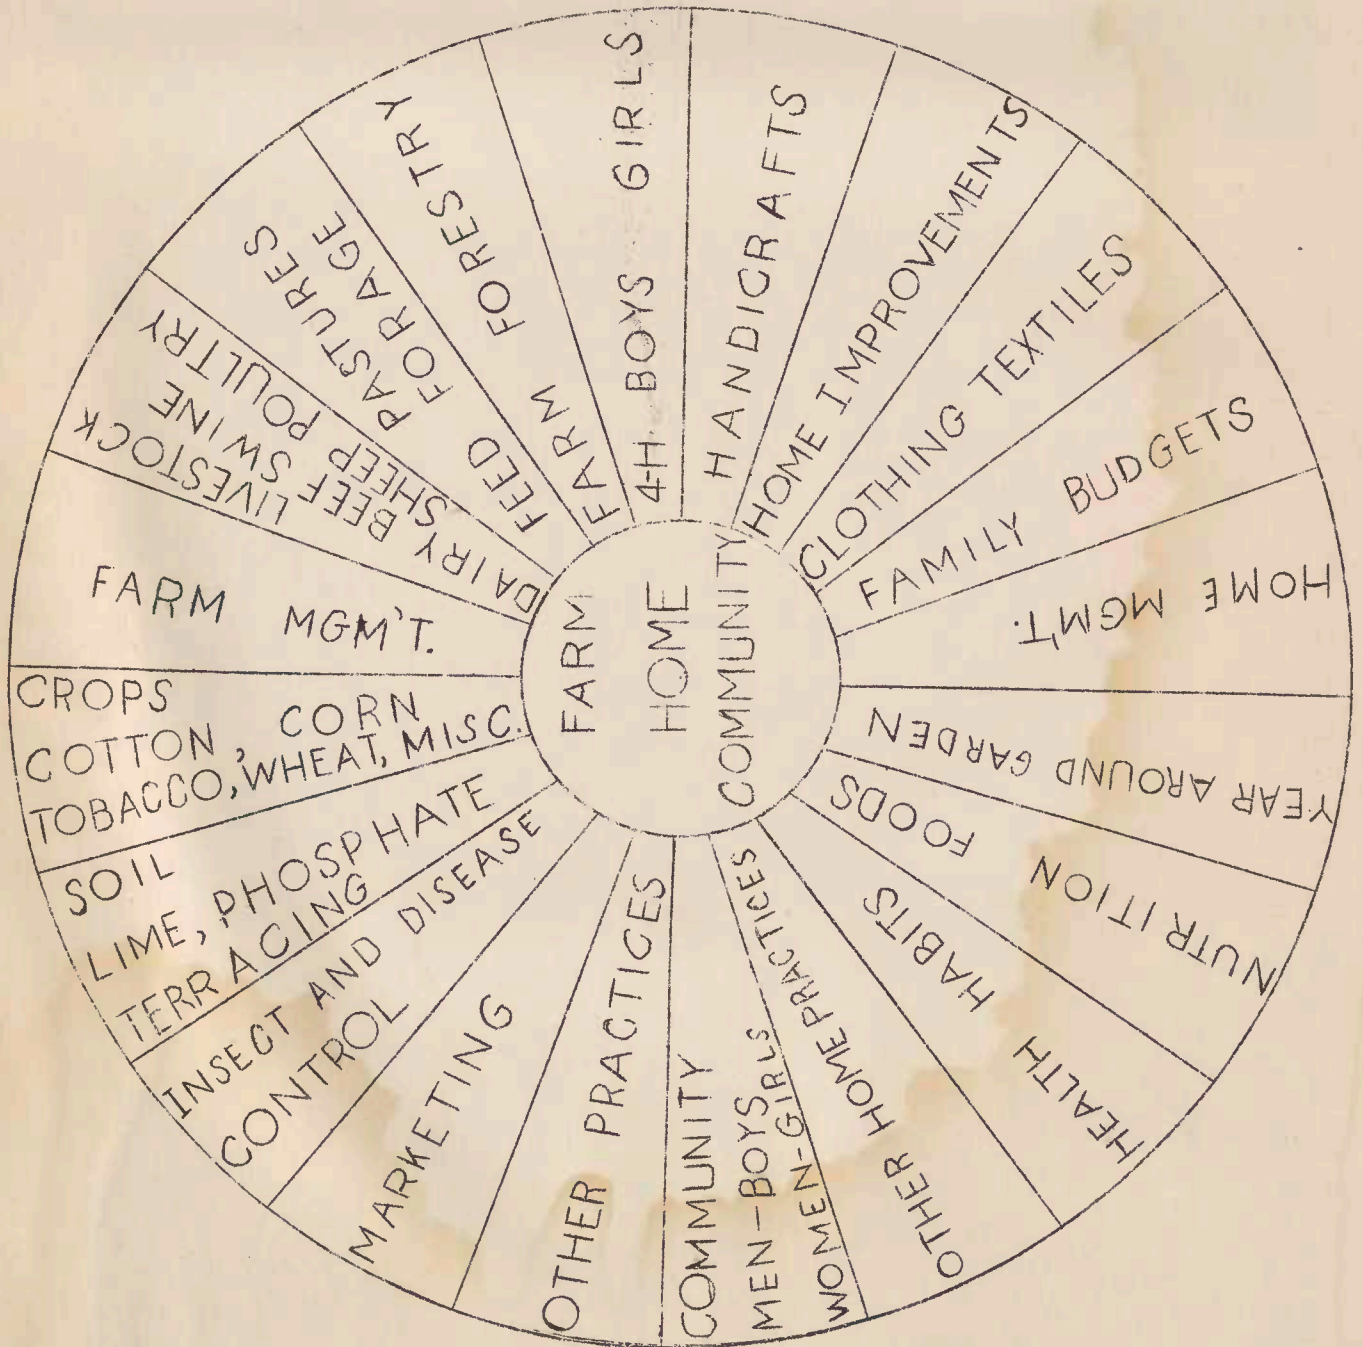 FARM
HOME
COMMUNITY
4-H BOYS GIRLS
HANDICRAFTS
HOME IMPROVEMENTS
CLOTHING TEXTILES
FAMILY BUDGETS
HOME MGM'T.
YEAR AROUND GARDEN
FOODS NUTRITION
HEALTH HABITS
OTHER HOME PRACTICES
COMMUNITY
MEN-BOYS
WOMEN-GIRLS
OTHER PRACTICES
MARKETING
INSECT AND DISEASE
CONTROL
SOIL
LIME, PHOSPHATE
TERRACING
CROPS
COTTON, CORN
TOBACCO, WHEAT, MISC.
FARM MGM'T.
LIVESTOCK
DAIRY, BEEF SWINE
SHEEP POULTRY
FEED PASTURES
FORAGE
FARM FORESTRY